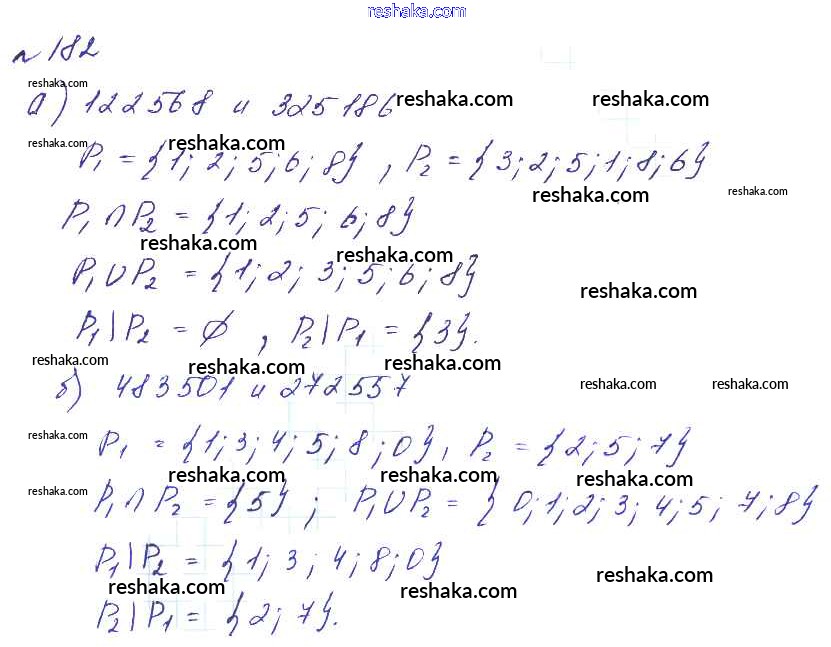 reshaka.com
№ 182
reshaka.com
а) 122568 и 325186 reshaka.com reshaka.com
reshaka.com reshaka.com
P₁ = {1; 2; 5; 6; 8}, P₂ = {3; 2; 5; 1; 8; 6}
reshaka.com reshaka.com
P₁ ∩ P₂ = {1; 2; 5; 6; 8}
reshaka.com reshaka.com
P₁ ∪ P₂ = {1; 2; 3; 5; 6; 8}
reshaka.com
P₁ \ P₂ = ∅, P₂ \ P₁ = {3}.
reshaka.com reshaka.com reshaka.com
б) 483501 и 272557
reshaka.com reshaka.com
reshaka.com
P₁ = {1; 3; 4; 5; 8; 0}, P₂ = {2; 5; 7}
reshaka.com reshaka.com reshaka.com
reshaka.com
P₁ ∩ P₂ = {5}; P₁ ∪ P₂ = {0; 1; 2; 3; 4; 5; 7; 8}
P₁ \ P₂ = {1; 3; 4; 8; 0}
reshaka.com reshaka.com reshaka.com
P₂ \ P₁ = {2; 7}.